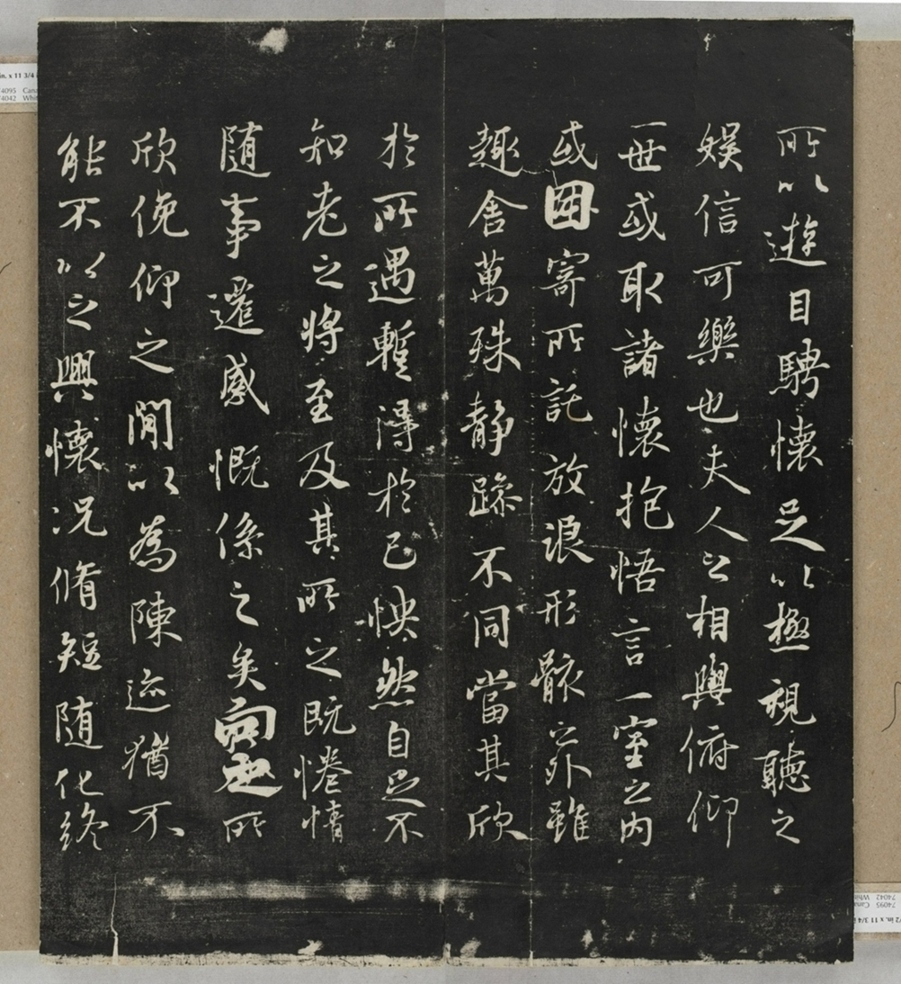 所以遊目騁懷足以極視聽之
娛信可樂也夫人之相與俯仰
一世或取諸懷抱悟言一室之內
或因寄所託放浪形骸之外雖
趣舍萬殊靜躁不同當其欣
於所遇暫得於己怏然自足不
知老之將至及其所之既惓情
隨事遷感慨係之矣向之所
欣俛仰之閒以為陳迹猶不
能不以之興懷況脩短隨化終
in. x 11 3/4
4095 Cana
4042 Whit
/2 in. x 11 3/4
74095 Cana
74042 Whit